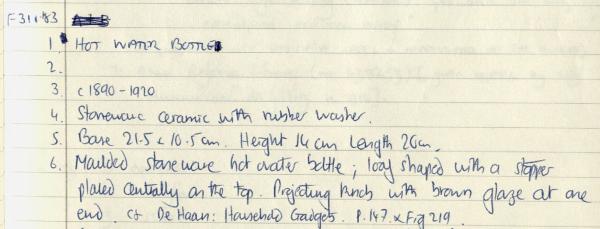 F 311.83
1. HOT WATER BOTTLE
2.
3. c 1890 - 1920
4. Stoneware ceramic with rubber washer.
5. Base 21.5 x 10.5cm. Height 14cm Length 26cm.
6. Moulded stoneware hot water bottle; loaf shaped with a stopper
placed centrally on the top. Projecting knob with brown glaze at one
end. cf De Haan: Household Gadgets. P.147. & Fig 219.